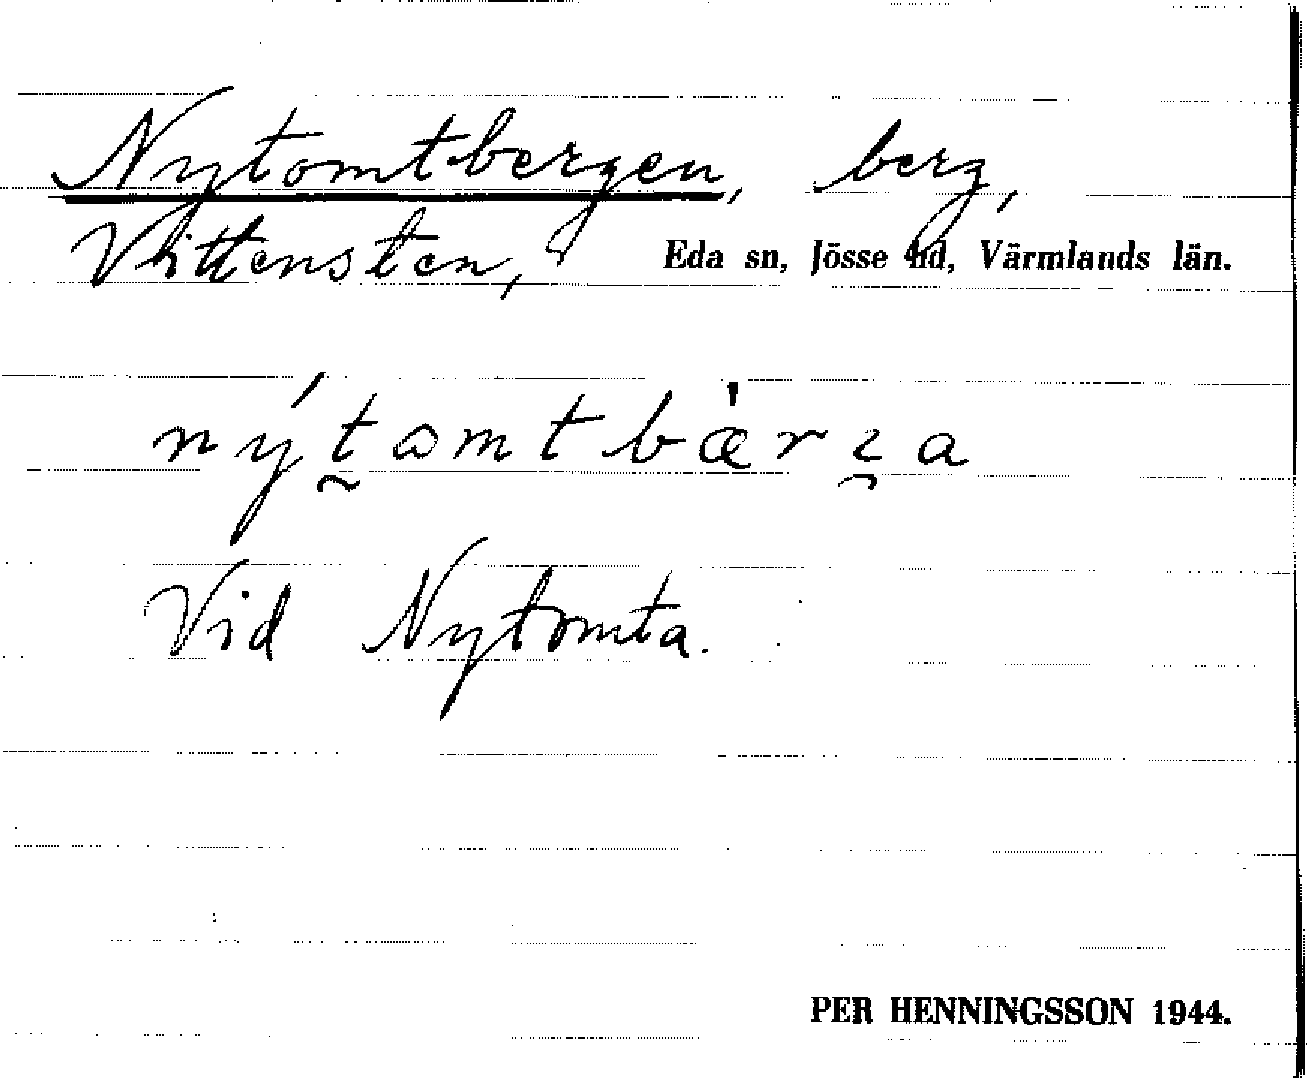 Nytomtbergen, berg,
Vittensten, Eda sn, Jösse hd, Värmlands län.
nýt̰ωmtbæ̀rɀ̰a
Vid Nytomta.
PER HENNINGSSON 1944.